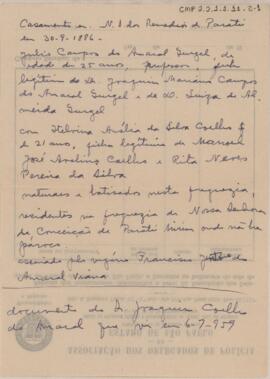 CMP 2.2.1.2.21.2-1
Casamento em N. S. dos Remedios de Parati
em 30-9-1886-
Julio Campos do Amaral Gurgel, de
idade de 25 anos, professor, filho
legitimo do Dr. Joaquim Mariano Campos
do Amaral Gurgel e de D. Luiza de Al
meida Gurgel
com Etelvina Amália da Silva Coelho
de 21 anos, filha legitima de Manoel
José Avelino Coelho e Rita Neves
Pereira da Silva
naturais e batisados nesta freguezia,
residentes na freguezia de Nossa Senhora
da Conceição de Parati Mirim onde não ha
párocos
assinado pelo vigário Francisco
Amaral Viana
documento do Dr. Joaquim Coelho
do Amaral que vi em 6-7-959
ESTADO DE SÃO PAULO
ASSOCIAÇÃO DOS DELEGADOS DE POLÍCIA